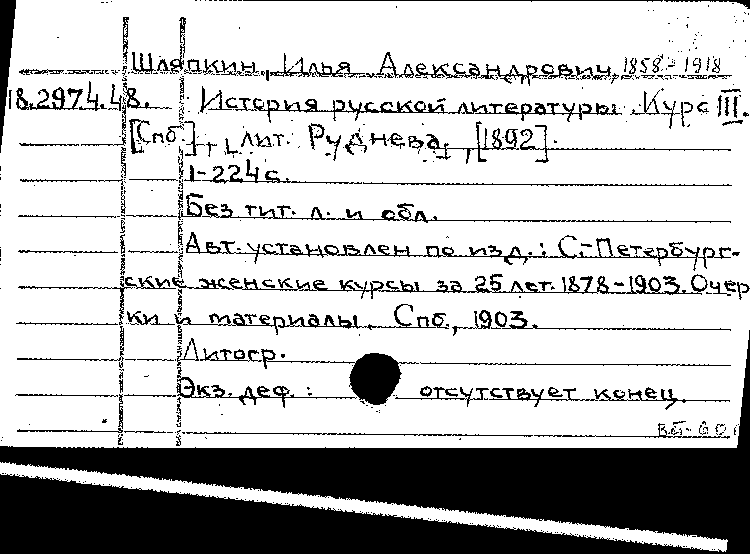 Шляпкин, Илья Александрович, 1858-1918
18.2974.48. История русской литературы. Курс III.
[Спб.], лит. Руднева, [1892].
1-224 с.
Без тит. л. и обл.
Авт. установлен по изд.: С.-Петербург-
ские женские курсы за 25 лет. 1878-1903. Очер
ки и материалы. Спб., 1903.
Литогр.
Экз. деф.: отсутствует конец.